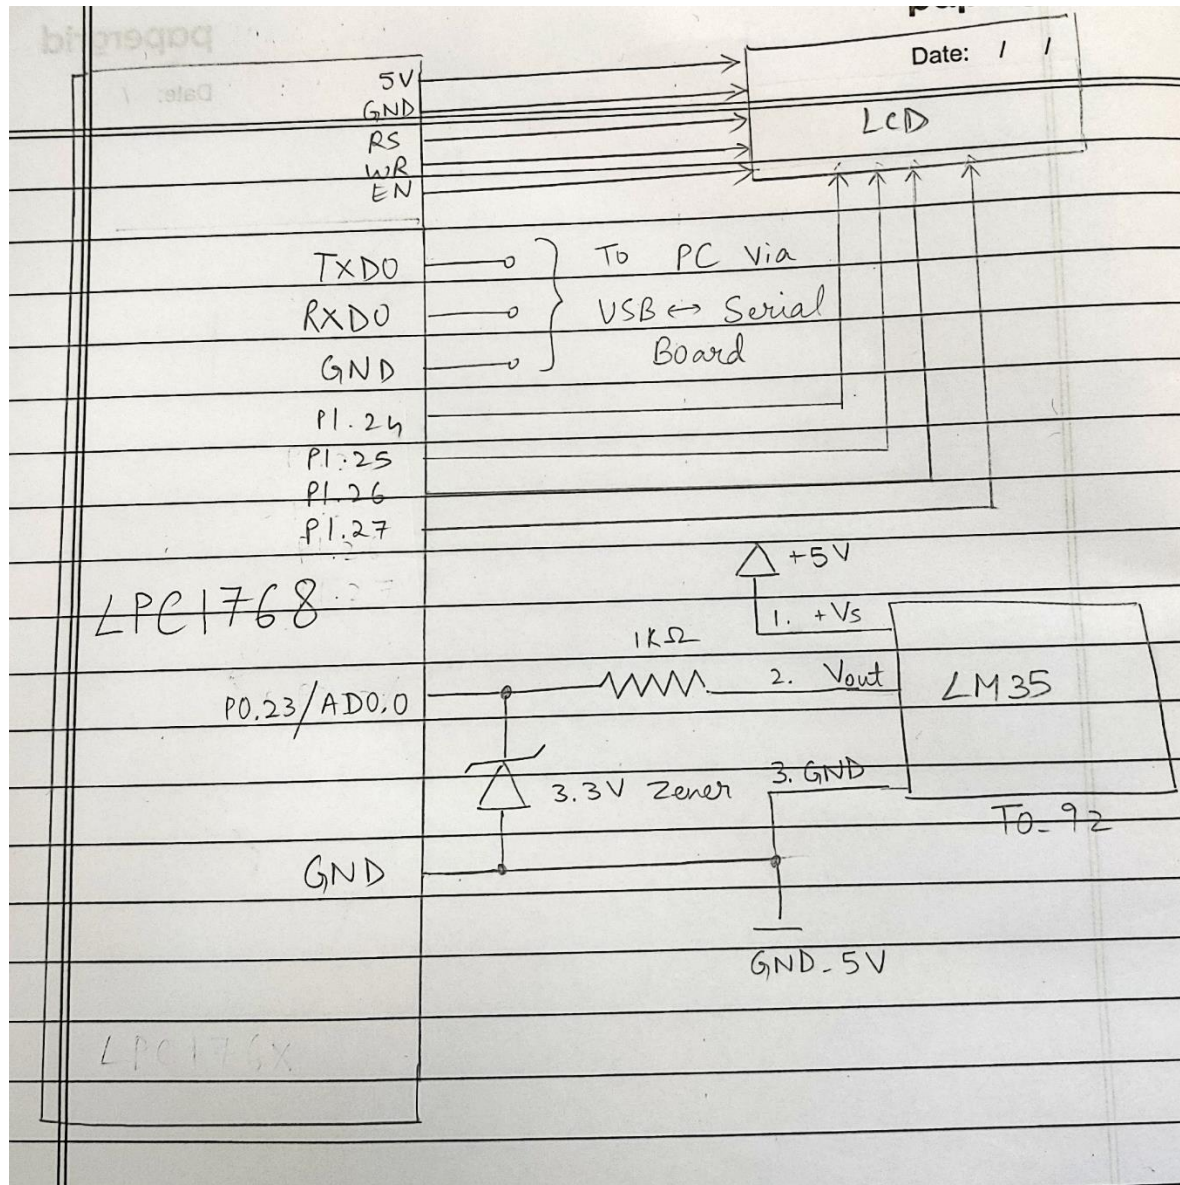 papergrid
Date: /
Date: / /
5V
GND
RS
WR
EN
LCD
TXD0
RXD0
GND
To PC Via
USB ↔ Serial
Board
P1.24
P1.25
P1.26
P1.27
LPC1768
+5V
1. +Vs
1KΩ
2. Vout
LM35
P0.23/AD0.0
3.3V Zener
3. GND
TO-92
GND
GND-5V
LPC176X